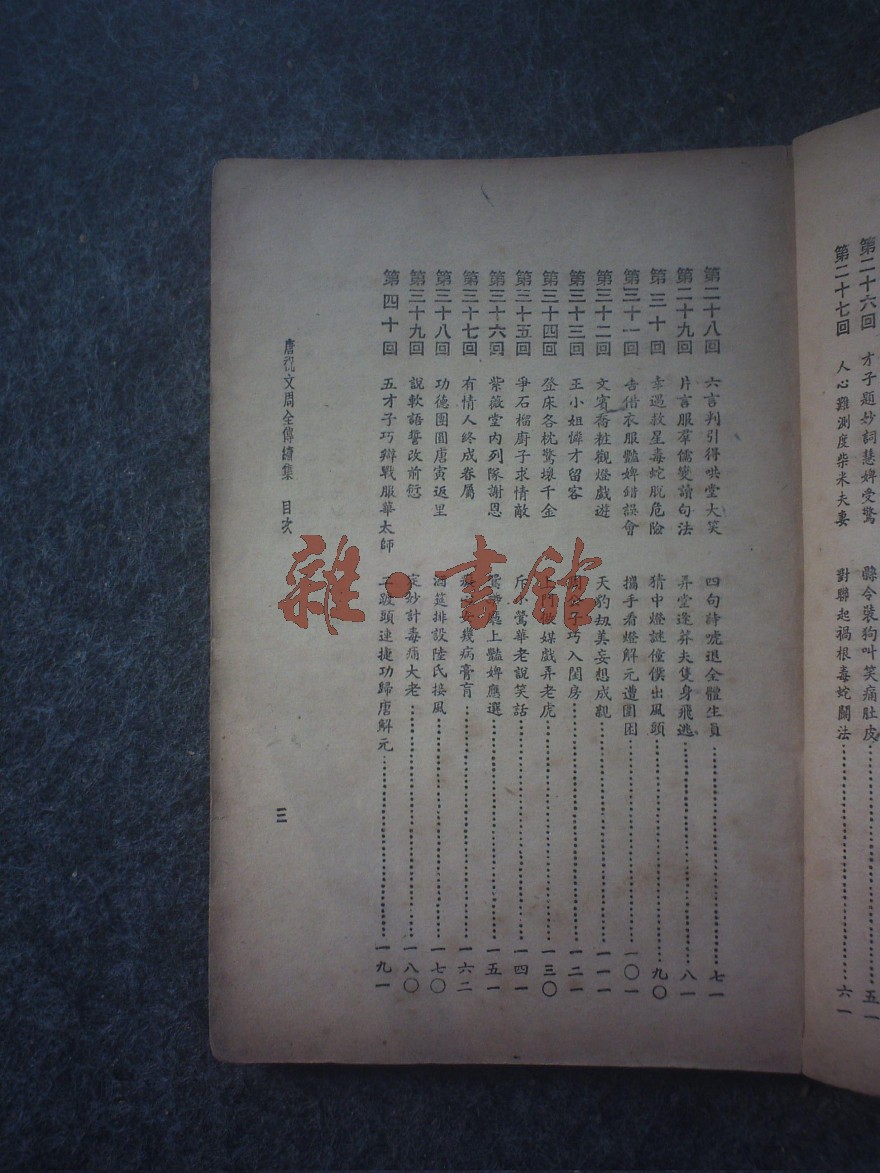 第二十六回 才子題妙詞慧婢受驚 縣令裝狗叫笑痛肚皮 五一
第二十七回 人心難測度柴米夫妻 對聯起禍根毒蛇鬭法 六一
第二十八回 六言判引得哄堂大笑 四句詩唬退全體生員 七一
第二十九回 片言服羣儒變讀句法 昇堂逢莽夫隻身飛逃 八一
第三十回 幸遇救星毒蛇脫危險 猜中燈謎僮僕出風頭 九〇
第三十一回 告借衣服豔婢錯誤會 攜手看燈解元遭圍困 一〇一
第三十二回 文賓喬粧觀燈戲遊 天豹刧美妄想成親 一一一
第三十三回 王小姐憐才留客 周公子巧入閨房 一二一
第三十四回 登床各枕驚壞千金 上門做媒戲弄老虎 一三〇
第三十五回 爭石榴廚子求情敵 斥小鶯華老說笑話 一四一
第三十六回 紫薇堂內列隊謝恩 鴛鴦廳上豔婢應選 一五一
第三十七回 有情人終成眷屬 病膏肓 一六二
第三十八回 功德團圓唐寅返里 酒筵排設陸氏接風 一七〇
第三十九回 說軟語誓改前愆 定妙計毒痛大老 一八〇
第四十回 五才子巧辯戰服華太師 二毀頭連捷功歸唐解元 一九一
唐祝文周全傳續集 目次 三
雜·書館